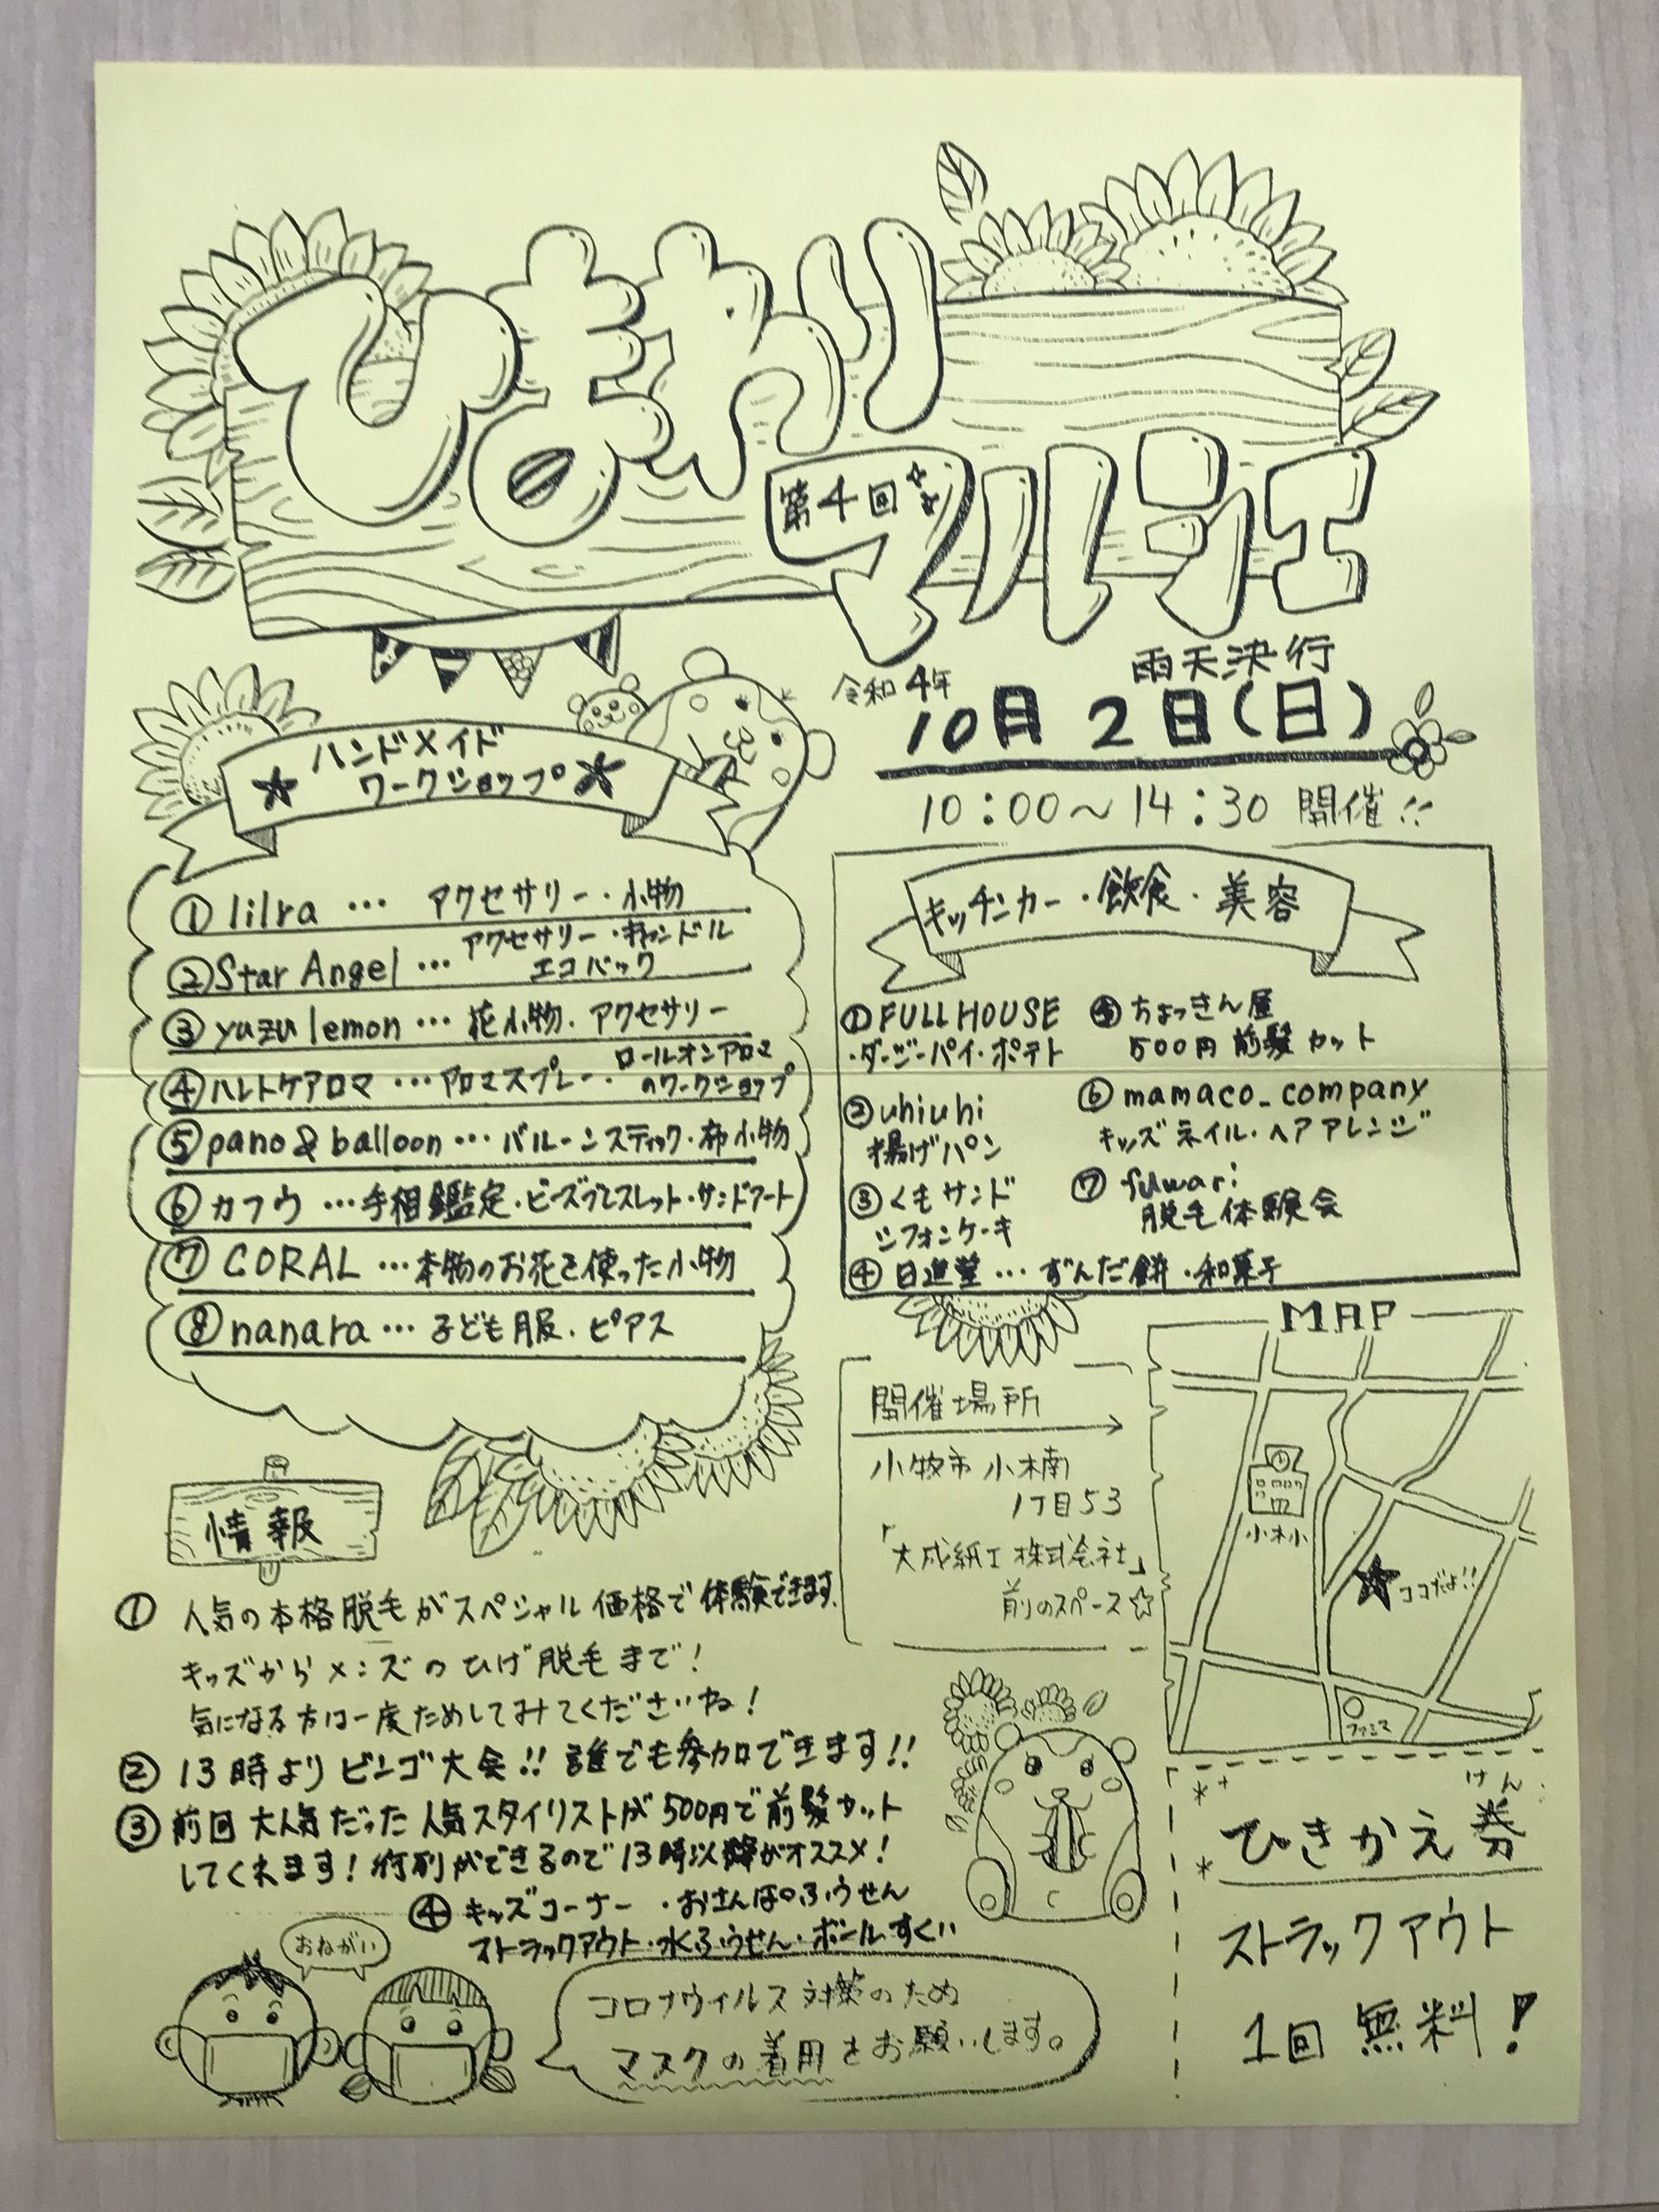 ひまわり
第4回
マルシェ
雨天決行
令和4年
10月2日(日)
10:00〜14:30 開催!!
ハンドメイド
ワークショップ
①lilra … アクセサリー・小物
②Star Angel … アクセサリー・キャンドル
エコバック
③yuzu lemon … 花小物・アクセサリー
④ハレトケアロマ … アロマスプレー・ロールオンアロマ
のワークショップ
⑤pano&balloon … バルーンスティック・布小物
⑥カフウ … 手相鑑定・ビーズブレスレット・サンドアート
⑦CORAL … 本物のお花を使った小物
⑧nanara … 子ども服・ピアス
キッチンカー・飲食・美容
①FULL HOUSE
・ダージーパイ・ポテト
②uhiuhi
揚げパン
③くもサンド
シフォンケーキ
④日進堂 … ずんだ餅・和菓子
⑤ちょっきん屋
500円 前髪カット
⑥mamaco_company
キッズネイル・ヘアアレンジ
⑦fuwari
脱毛体験会
開催場所
小牧市小木南
1丁目53
「大成紙工株式会社」
前のスペース☆
MAP
小木小
ココだよ!!
ファミマ
情報
① 人気の本格脱毛がスペシャル価格で体験できます。
キッズからメンズのひげ脱毛まで!
気になる方は一度ためしてみてくださいね!
② 13時よりビンゴ大会!! 誰でも参加できます!!
③ 前回大人気だった人気スタイリストが500円で前髪カット
してくれます!行列ができるので13時以降がオススメ!
④ キッズコーナー ・おさんぽふうせん
ストラックアウト・水ふうせん・ボールすくい
おねがい
コロナウィルス対策のため
マスクの着用をお願いします。
けん
ひきかえ券
ストラックアウト
1回無料!